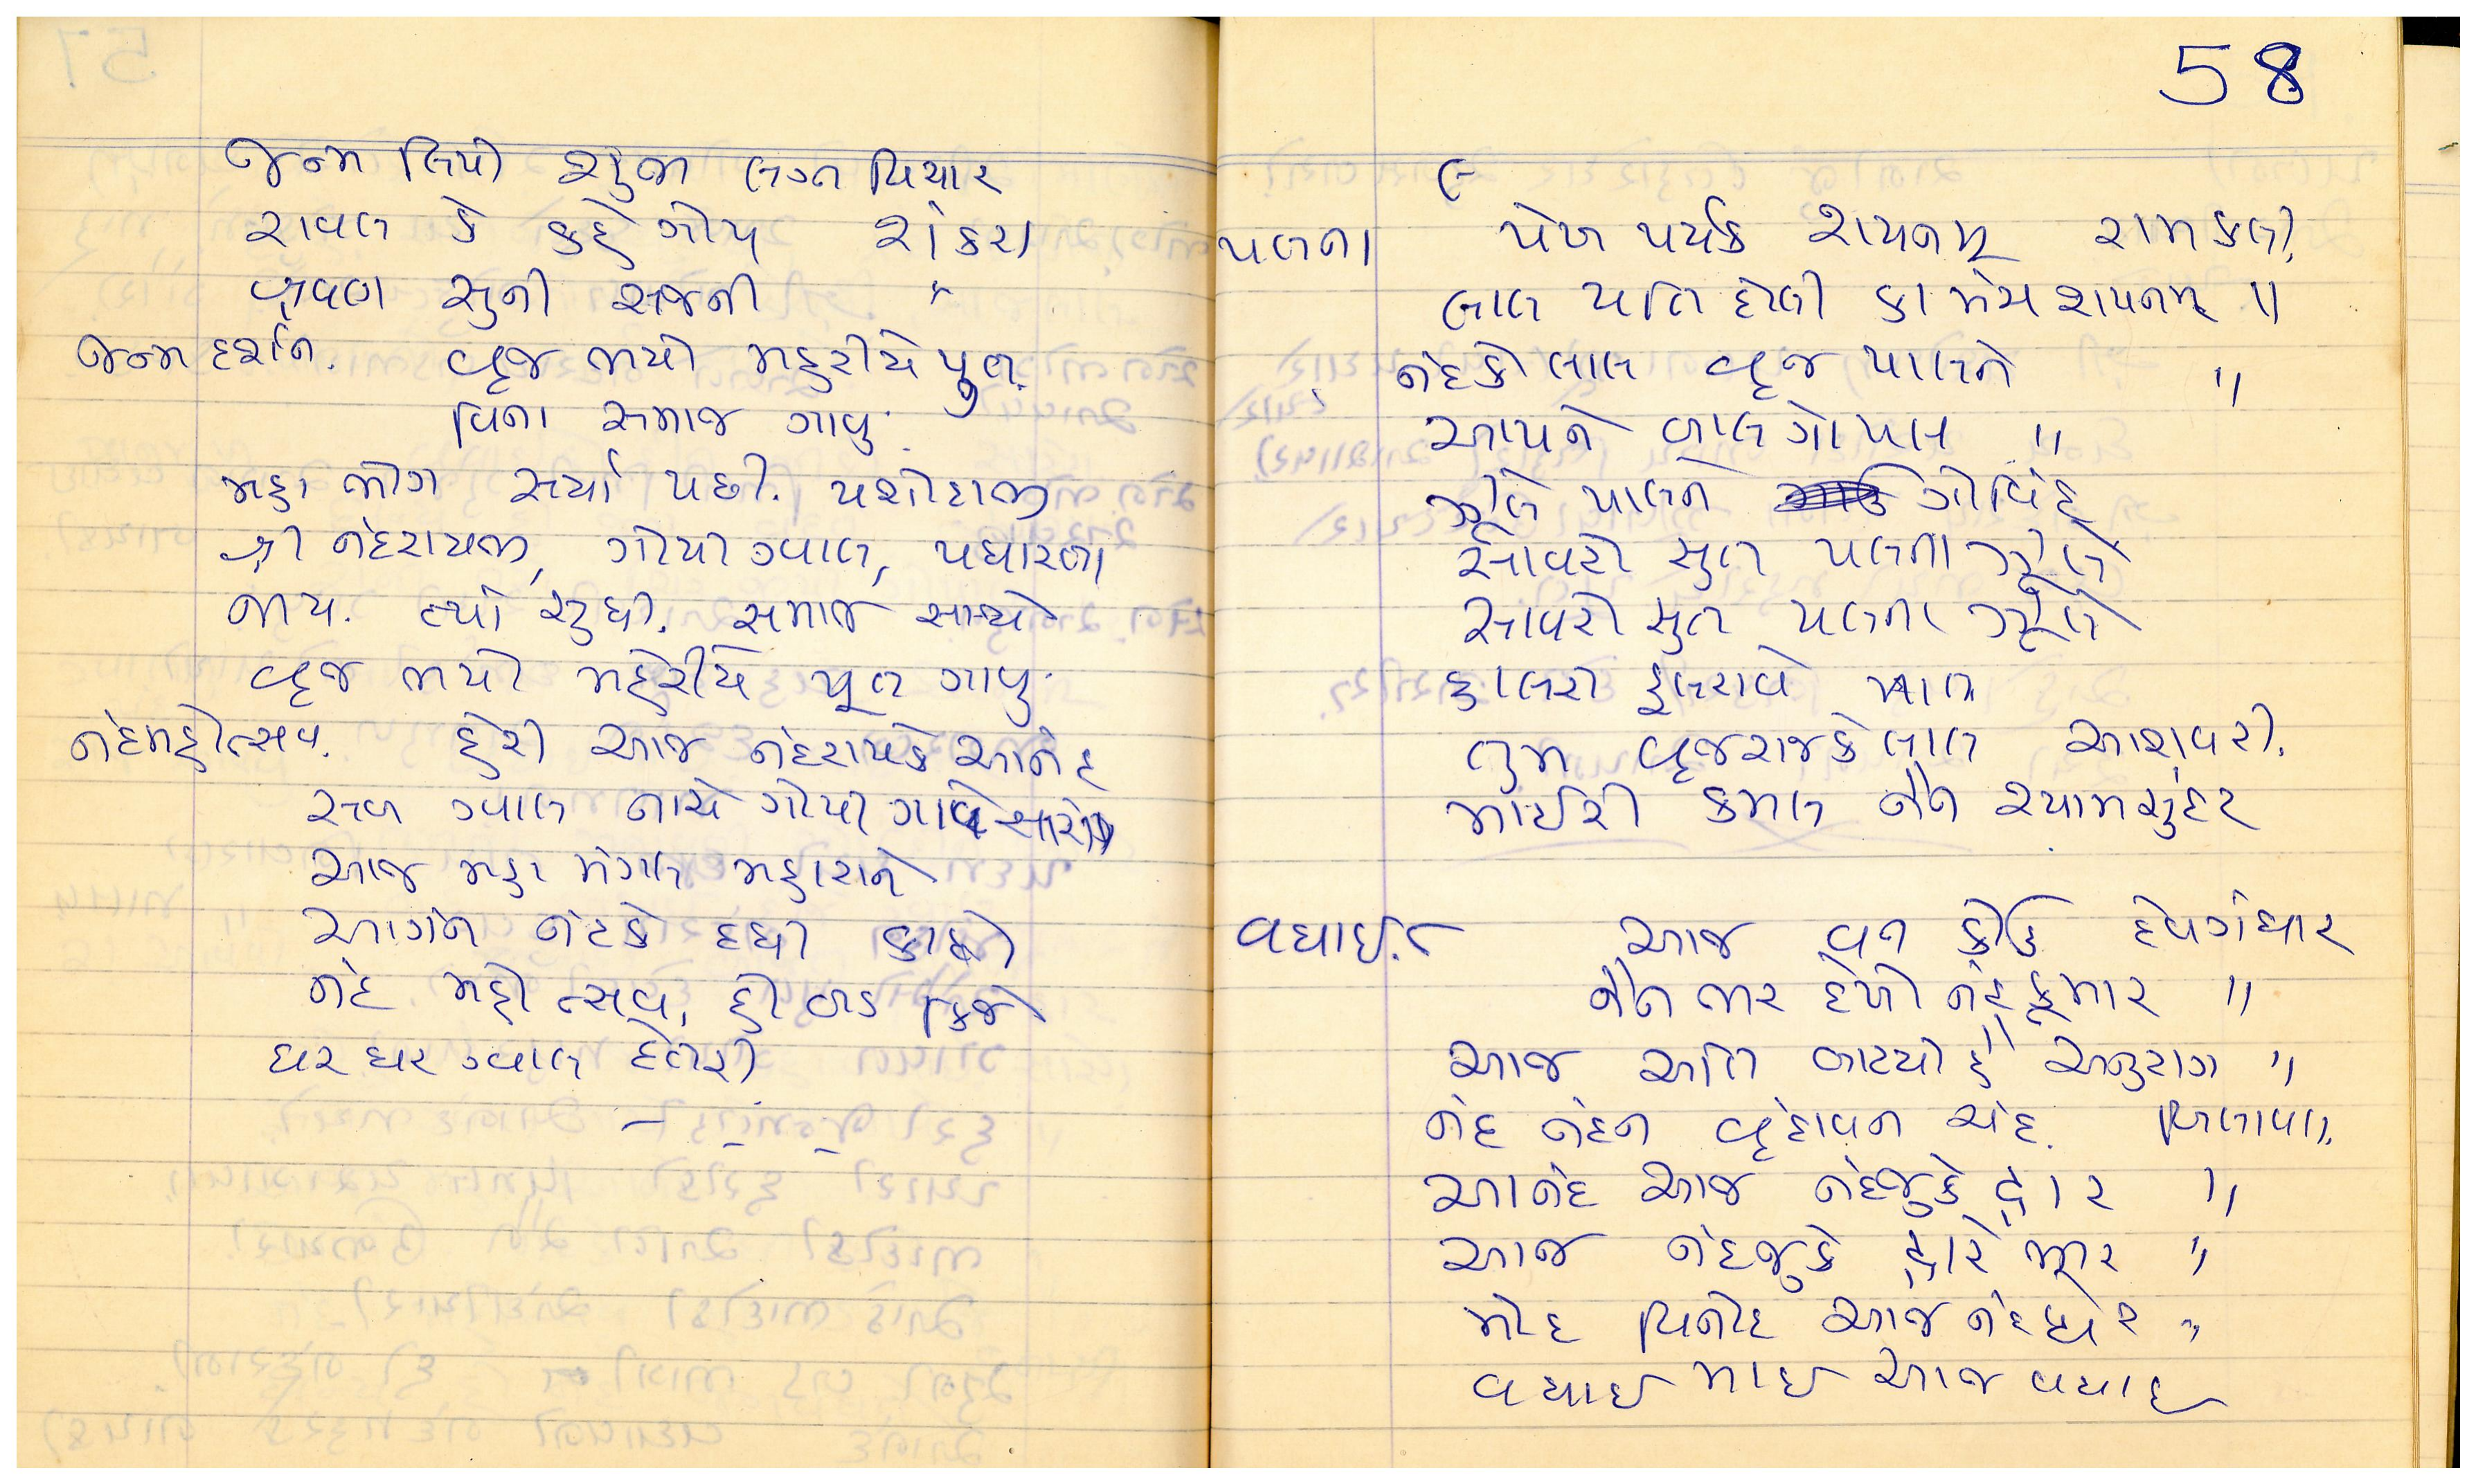 જન્મ લિયો શુભ લગ્ન વિચાર
રાવલ કે કહે ગોપ શંકરા
શ્રવણ સુની સજની "
જન્મ દર્શન. વ્રજ ભયો મહરીયે પુત.
વિના સમાજ ગાવુ.
મહા ભોગ સર્યા પછી. યશોદાજી
શ્રી નંદરાયજી, ગોપી ગ્વાલ, પધારતા
જાય. ત્યાં સુધી. સમાજ સાથે
વ્રજ ભયો મહેરીયે પૂત ગાવુ.
નંદમહોત્સવ. હેરી આજ નંદરાયકે આનંદ
સબ ગ્વાલ નાચે ગોપી ગાવે
આજ મહા મંગલ મહારાને
આગંન નંદકે દધી કાદો
નંદ મહોત્સવ, હો બડ કિજે
ઘર ઘર ગ્વાલ દેતરી
58
પલના પેખ પર્યંક શયનમ્ રામકલી.
લાલ પતિ દોલી કા મંચ શયનમ્ "
નંદકો લાલ વ્રજ પાલને "
આપને બાલ ગોપાલ "
ઝુલે પાલને ગોવિંદ
સાવરો સુત પલના ઝુલે
સાવરો સુત પલના ઝુલે
હાલરો હુલરાવે માત
તુમ વ્રજરાજકે લાલ આશાવરી.
માઈરી કમલ નૈન શ્યામસુંદર
વધાઈ. આજ બન કોઉ દેવગંધાર
નૈન ભર દેખો નંદકુમાર "
આજ અતિ બાઢયો હૈ અનુરાગ "
નંદ નંદન વૃંદાવન ચંદ. બિલાવલ.
આનંદ આજ નંદજુકે દ્વાર "
આજ નંદજુકે દ્વારે ભીર "
મોદ વિનોદ આજ નંદ ઘર "
વધાઈ માઈ આજ વધાઈ